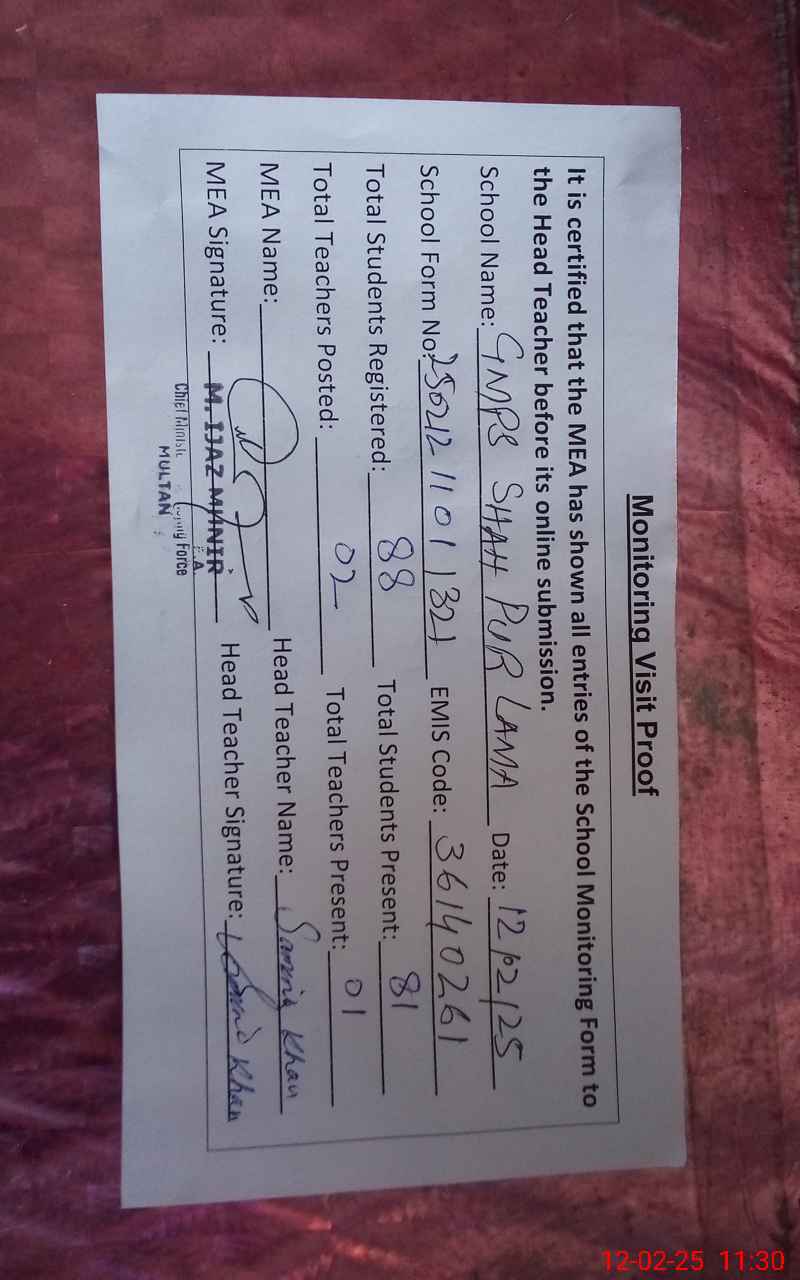 Monitoring Visit Proof
It is certified that the MEA has shown all entries of the School Monitoring Form to
the Head Teacher before its online submission.
School Name: GMPS SHAH PUR LAMA Date: 12/02/25
School Form No: 250212 1101 1321 EMIS Code: 36140261
Total Students Registered: 88 Total Students Present: 81
Total Teachers Posted: 02 Total Teachers Present: 01
MEA Name: Head Teacher Name: Samina Khan
MEA Signature: M. IJAZ MUNIR Head Teacher Signature: Khan
Force
MULTAN
12-02-25 11:30